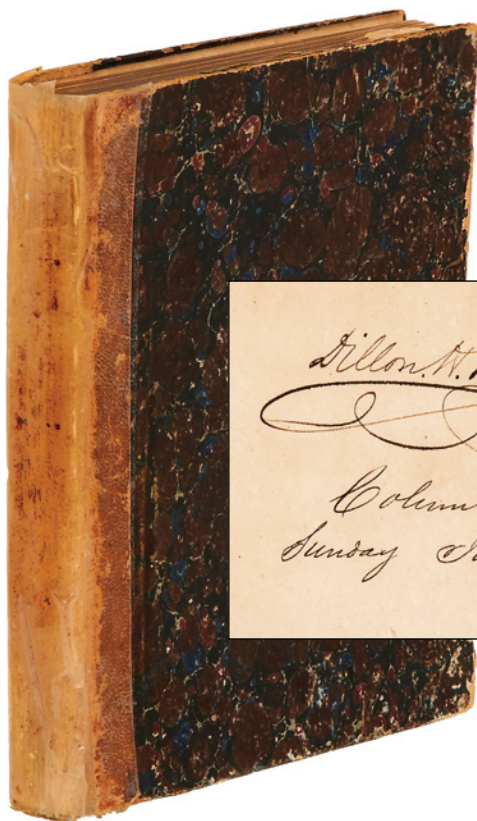 Dillon. W.
Colum
Sunday